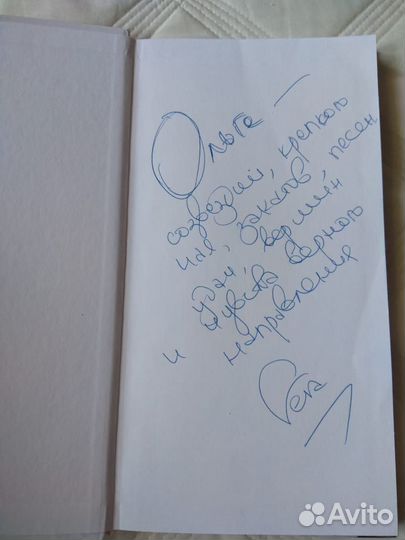 Ольге —
созвездий, крепкого
чая, закатов, песен
удач, вершин
и чувства верного
направления
Avito